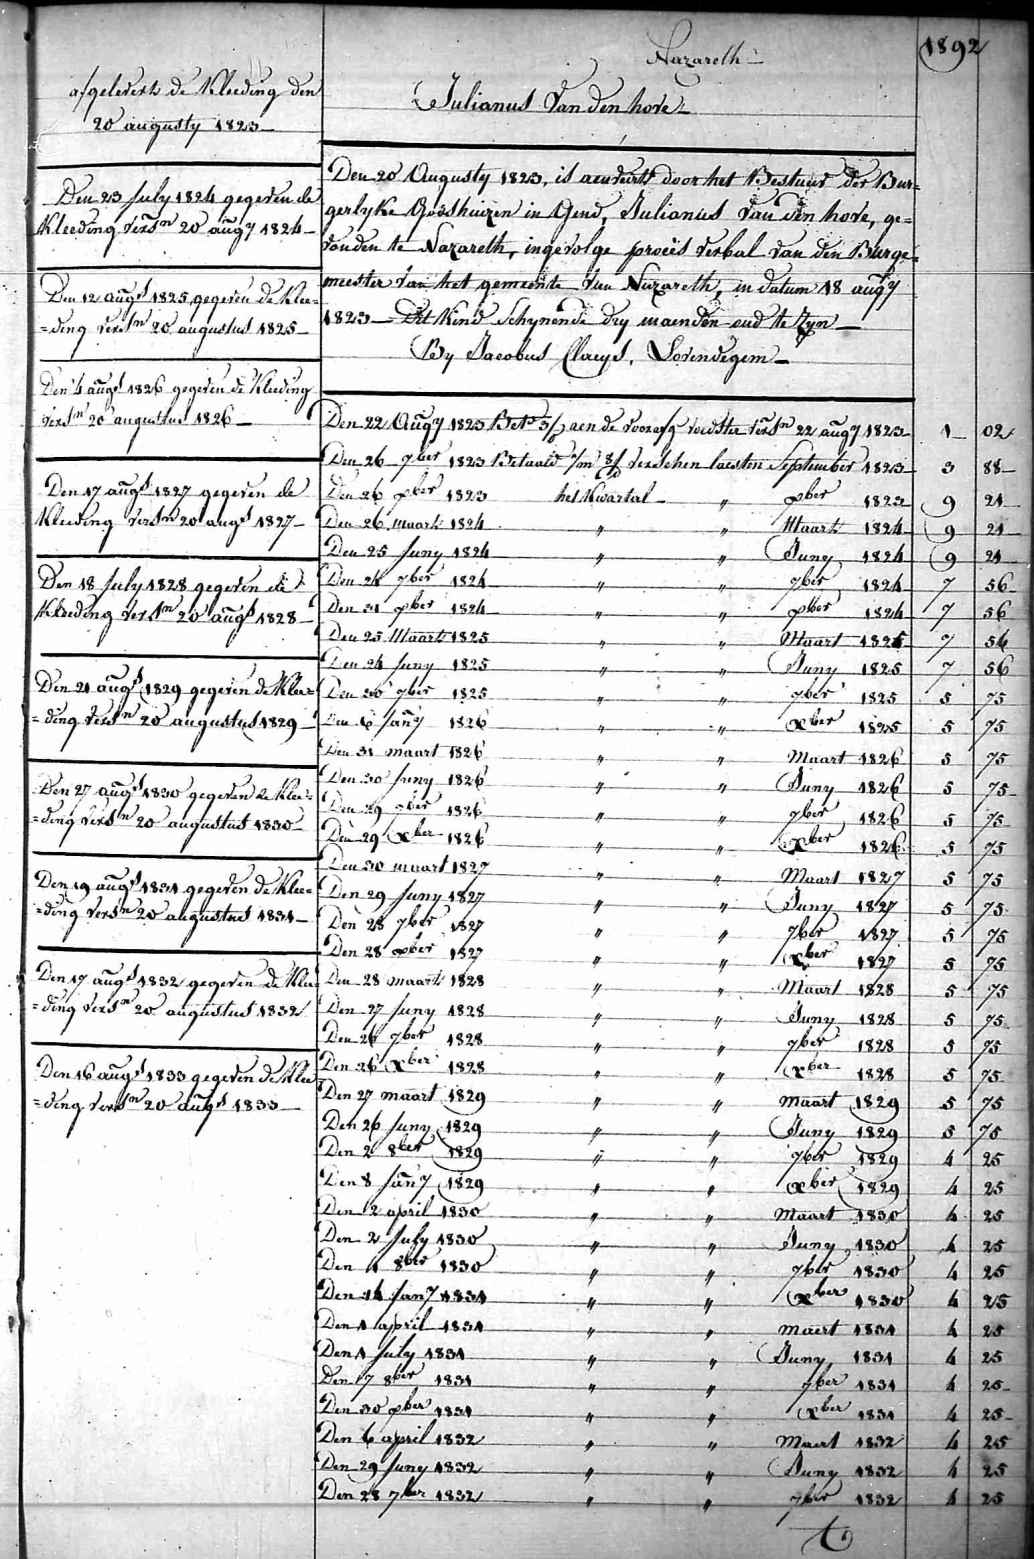 1892
Nazareth
afgelevert de Kleeding den
20 augusty 1823
Julianus Van den hove
Den 23 july 1824 gegeven de
Kleeding versn 20 augy 1824
Den 12 augst 1825 gegeven de Klee=
=ding versn 20 augustus 1825
Den 4 augst 1826 gegeven de Kleeding
versn 20 augustus 1826
Den 17 augst 1827 gegeven de
Kleeding versn 20 augst 1827
Den 18 july 1828 gegeven de
Kleeding versn 20 augst 1828
Den 21 augst 1829 gegeven de Klee=
=ding versn 20 augustus 1829
Den 27 augst 1830 gegeven de Klee=
=ding versn 20 augustus 1830
Den 19 augst 1831 gegeven de Klee=
=ding versn 20 augustus 1831
Den 17 augst 1832 gegeven de Klee
=ding versn 20 augustus 1832
Den 16 augst 1833 gegeven de Klee
=ding versn 20 augst 1833
Den 20 Augusty 1823, is aenveert door het Bestuur der Bur=
gerlyke Godshuizen in Gend, Julianus Van den hove, ge=
vonden te Nazareth, ingevolge proces verbal van den Burge=
meester van het gemeente van Nazareth, in datum 18 augy
1823 Dit Kind Schynende dry maenden oud te Zyn
By Jacobus Claeys, Lovendegem
Den 22 Augy 1823 Bet aen de voedster versn 22 augy 1823 1 02
Den 26 7ber 1823 Betaald verschen laesten September 1823 3 88
Den 26 xber 1823 het Kwartal " xber 1823 9 21
Den 26 maart 1824 " " Maart 1824 9 21
Den 25 Juny 1824 " " Juny 1824 9 21
Den 24 7ber 1824 " " 7ber 1824 7 56
Den 31 xber 1824 " " xber 1824 7 56
Den 25 Maart 1825 " " Maart 1825 7 56
Den 24 Juny 1825 " " Juny 1825 7 56
Den 30 7ber 1825 " " 7ber 1825 5 75
Den 6 Jany 1826 " " xber 1825 5 75
Den 31 maart 1826 " " Maart 1826 5 75
Den 30 Juny 1826 " " Juny 1826 5 75
Den 29 7ber 1826 " " 7ber 1826 5 75
Den 29 xber 1826 " " xber 1826 5 75
Den 30 maart 1827 " " Maart 1827 5 75
Den 29 Juny 1827 " " Juny 1827 5 75
Den 28 7ber 1827 " " 7ber 1827 5 75
Den 28 xber 1827 " " xber 1827 5 75
Den 28 maart 1828 " " Maart 1828 5 75
Den 27 Juny 1828 " " Juny 1828 5 75
Den 26 7ber 1828 " " 7ber 1828 5 75
Den 26 xber 1828 " " xber 1828 5 75
Den 27 maart 1829 " " maart 1829 5 75
Den 26 Juny 1829 " " Juny 1829 5 75
Den 2 8ber 1829 " " 7ber 1829 4 25
Den 8 Jany 1829 " " xber 1829 4 25
Den 2 april 1830 " " Maart 1830 4 25
Den 2 July 1830 " " Juny 1830 4 25
Den 1 8ber 1830 " " 7ber 1830 4 25
Den 14 Jany 1831 " " xber 1830 4 25
Den 1 april 1831 " " maert 1831 4 25
Den 1 July 1831 " " Juny 1831 4 25
Den 7 8ber 1831 " " 7ber 1831 4 25
Den 30 xber 1831 " " xber 1831 4 25
Den 6 april 1832 " " Maert 1832 4 25
Den 29 Juny 1832 " " Juny 1832 4 25
Den 28 7ber 1832 " " 7ber 1832 4 25